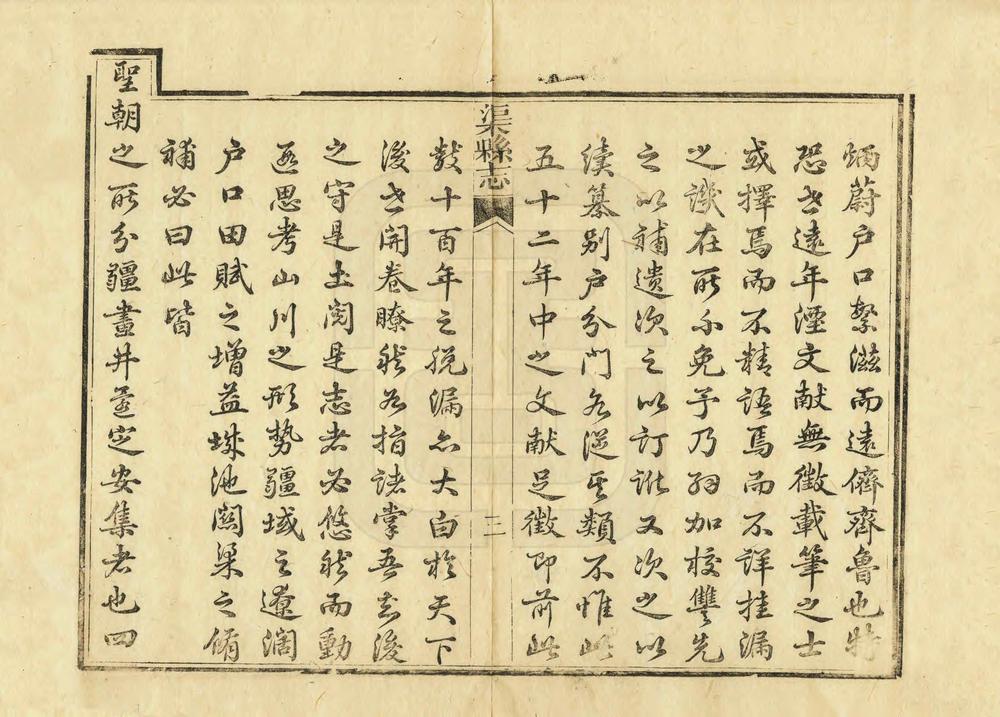 炳蔚户口繁滋而遠儕齊魯也特
恐世遠年湮文献無徵載筆之士
或擇焉而不精語焉而不詳挂漏
之譏在所不免予乃細加校讐先
之以補遺次之以訂訛又次之以
續纂别户分門各從其類不惟此
五十二年中之文献足徵即前此
渠縣志
三
數十百年之脱漏亦大白於天下
後世開卷瞭然如指諸掌吾知後
之守是土閲是志者必悠然而動
遐思考山川之形勢疆域之遼濶
户口田賦之增益城池関梁之脩
補必曰此皆
聖朝之所分疆畫井奠定安集者也四